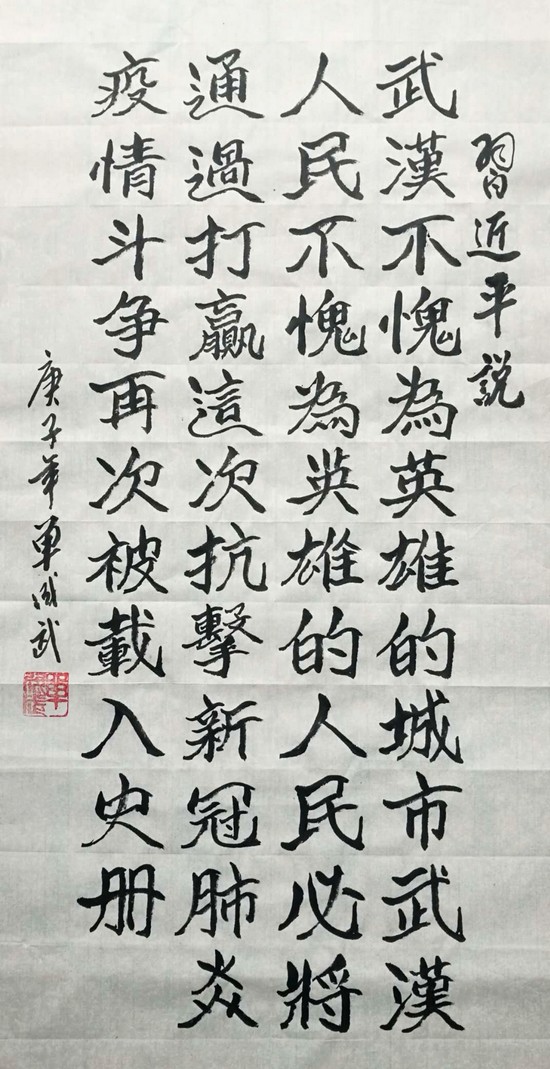 習近平説
武漢不愧為英雄的城市武漢
人民不愧為英雄的人民必將
通過打贏這次抗擊新冠肺炎
疫情斗争再次被載入史册
庚子年單成武